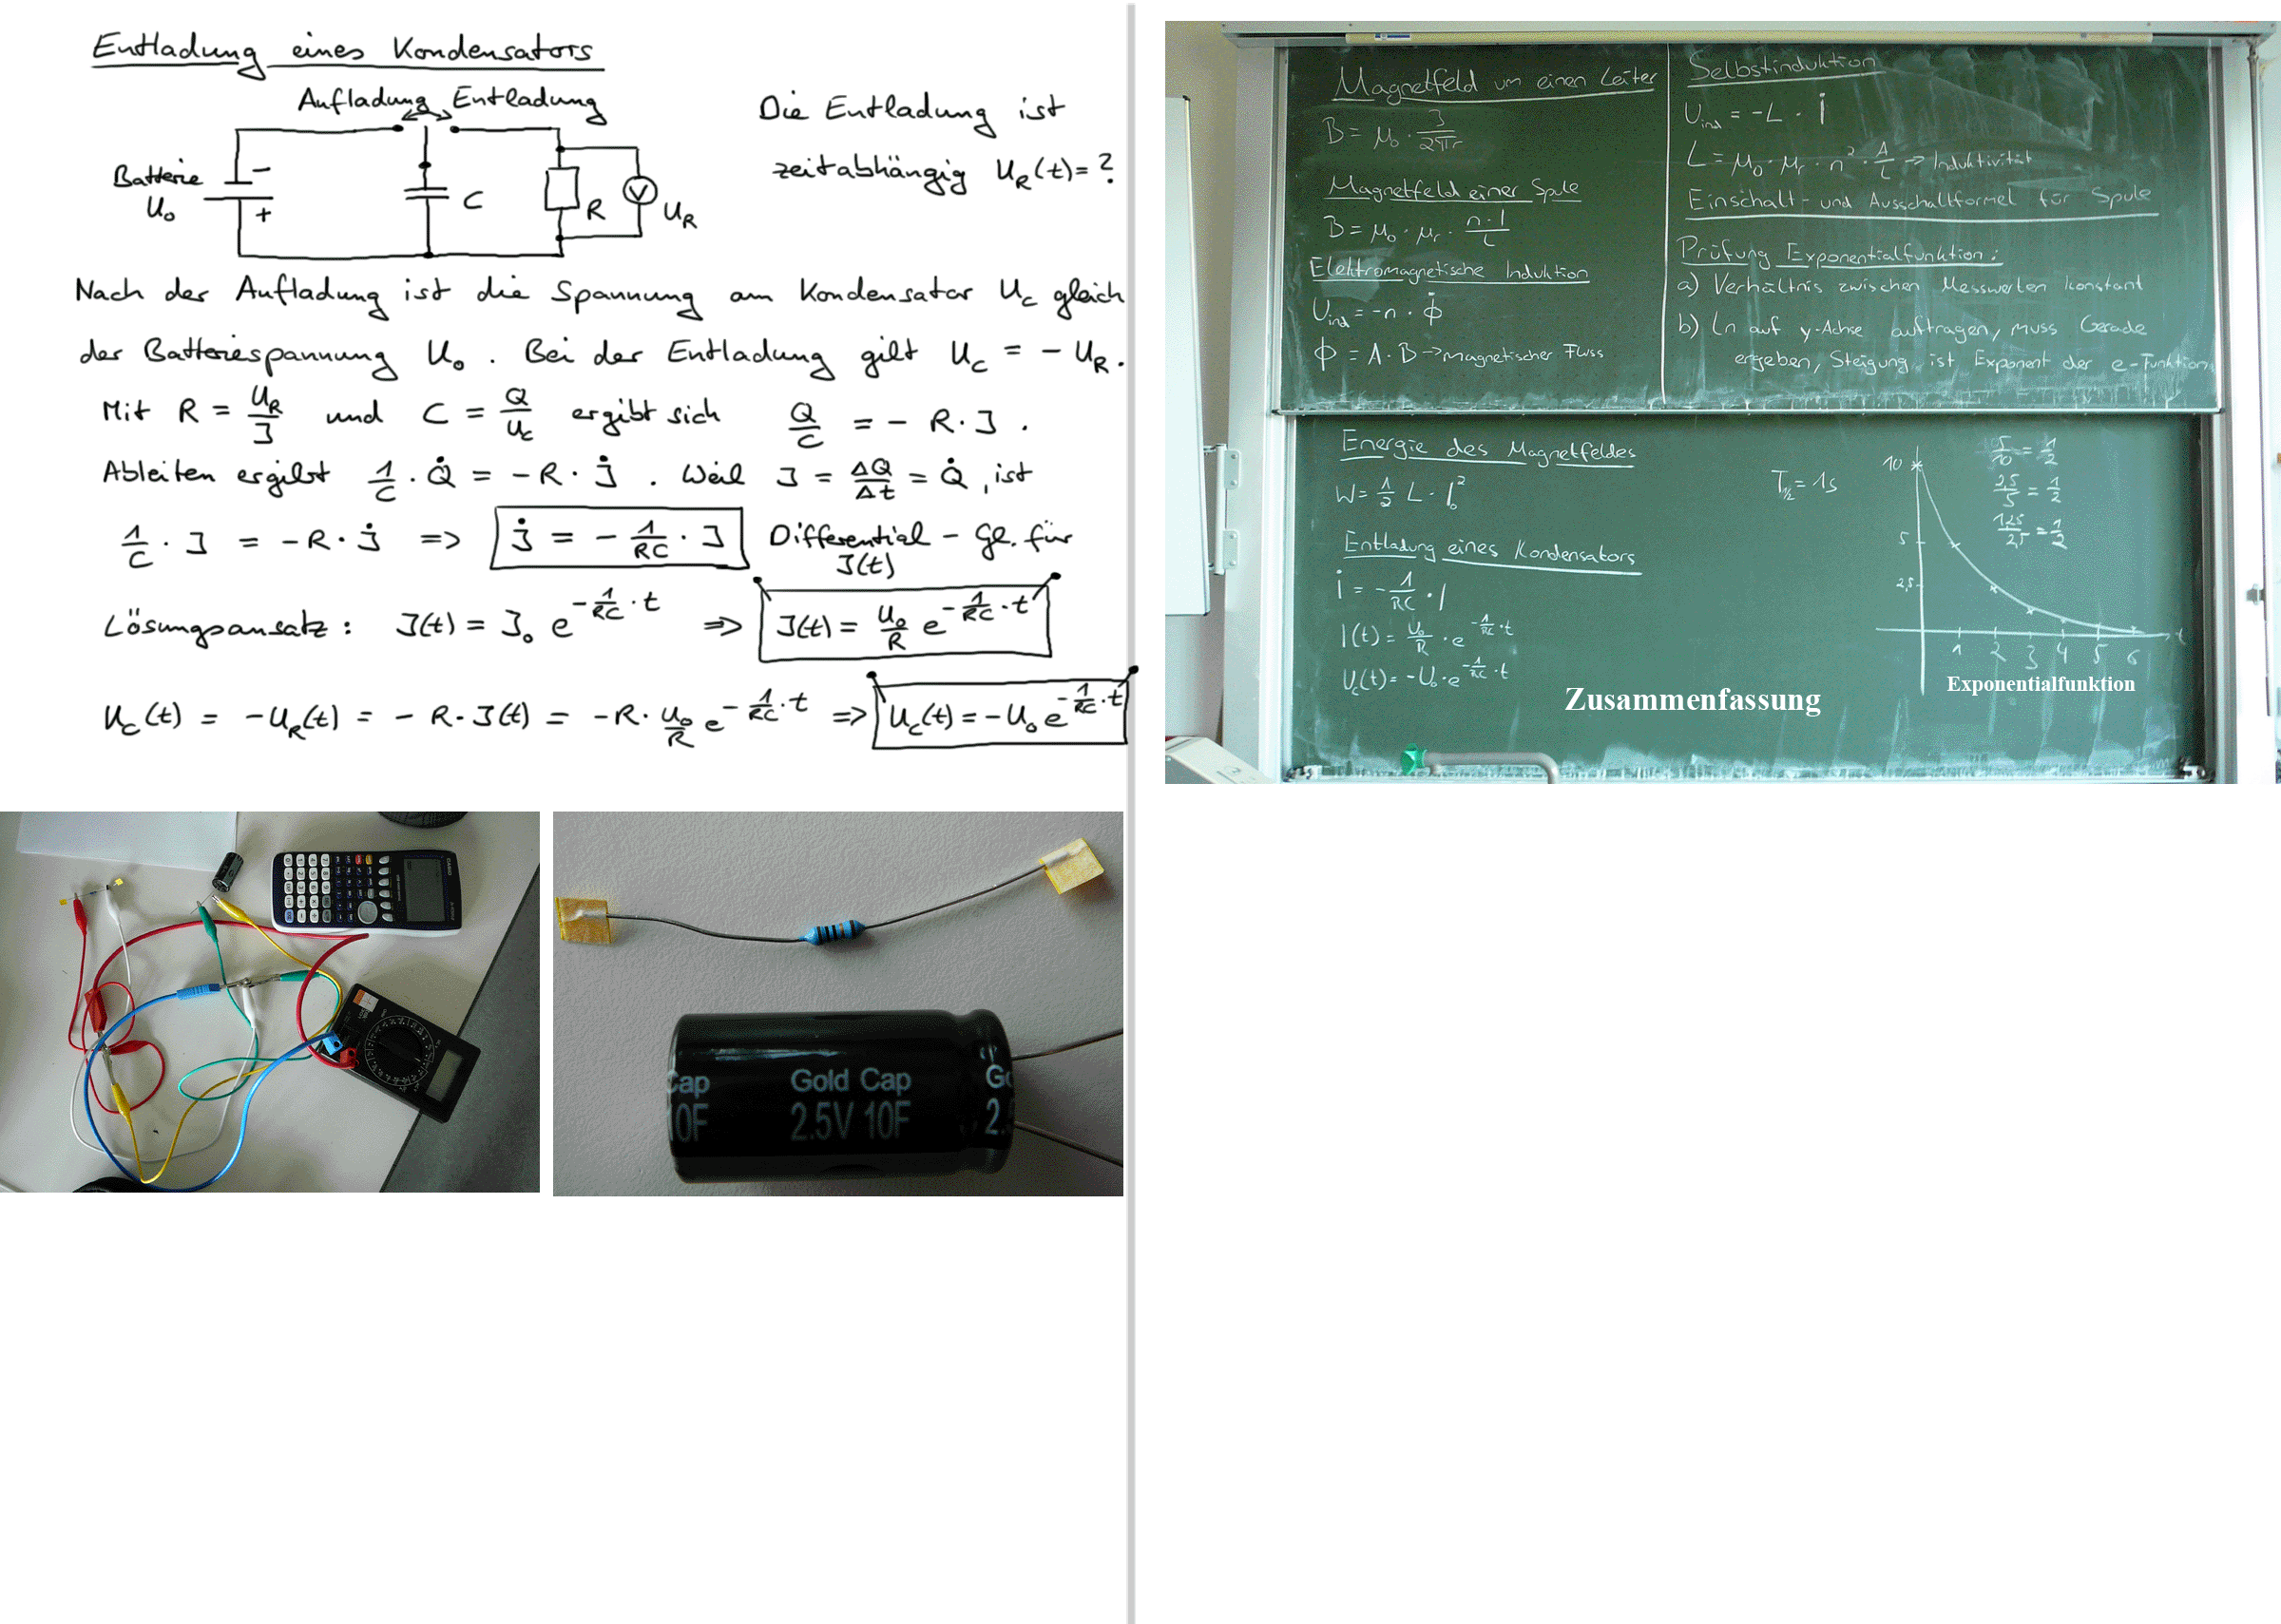 Entladung eines Kondensators
Aufladung Entladung
Die Entladung ist
zeitabhängig U_R(t) = ?
Batterie
U₀
−
+
C
R
V
U_R
Nach der Aufladung ist die Spannung am Kondensator U_C gleich
der Batteriespannung U₀. Bei der Entladung gilt U_C = − U_R.
Mit R = U_R/I und C = Q/U_C ergibt sich Q/C = − R · I .
Ableiten ergibt 1/C · Q̇ = − R · İ . Weil I = ΔQ/Δt = Q̇ , ist
1/C · I = − R · İ => İ = − 1/RC · I Differential - Gl. für
I(t)
Lösungsansatz : I(t) = I₀ e^(−1/RC · t) => I(t) = U₀/R e^(−1/RC · t)
U_C(t) = − U_R(t) = − R · I(t) = − R · U₀/R e^(−1/RC · t) => U_C(t) = − U₀ e^(−1/RC · t)
Magnetfeld um einen Leiter
B = μ₀ · I/2πr
Magnetfeld einer Spule
B = μ₀ · μᵣ · n · I/l
Elektromagnetische Induktion
U_ind = −n · Φ̇
Φ = A · B → magnetischer Fluss
Selbstinduktion
U_ind = −L · İ
L = μ₀ · μᵣ · n² · A/l → Induktivität
Einschalt- und Ausschaltformel für Spule
Prüfung Exponentialfunktion :
a) Verhältnis zwischen Messwerten konstant
b) ln auf y-Achse auftragen, muss Gerade
ergeben, Steigung ist Exponent der e-Funktion
Energie des Magnetfeldes
W = 1/2 L · I₀²
Entladung eines Kondensators
İ = − 1/RC · I
I(t) = U₀/R · e^(−1/RC · t)
U_C(t) = − U₀ · e^(−1/RC · t)
T_½ = 1s
10
5
2,5
1 2 3 4 5 6 t
5/10 = 1/2
2,5/5 = 1/2
1,25/2,5 = 1/2
Exponentialfunktion
Zusammenfassung
Cap
10F
Gold Cap
2.5V 10F
Go
2.